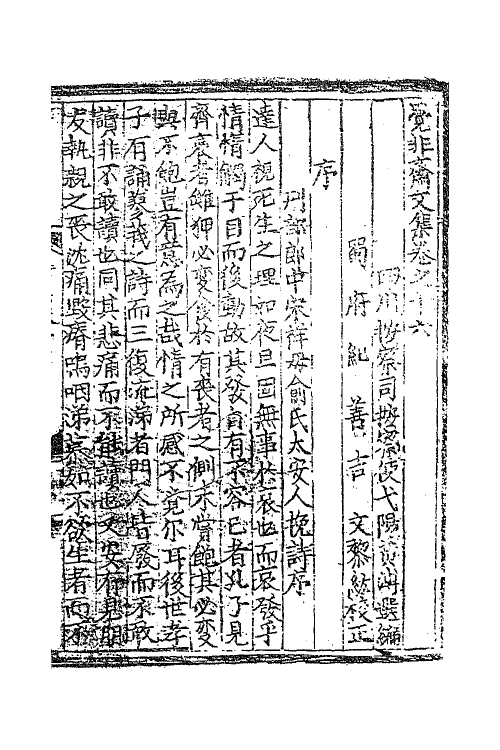 覺非齋文集卷之十六
四川按察司按察使弋陽黃溥選編
蜀府紀善吉文黎公校正
序
刑部郎中宋祥母俞氏太安人挽詩序
達人視死生之理如夜旦固無事於哀也而哀發乎
情情觸于目而後動故其發自有不容已者孔子見
齊衰者雖狎必變食於有喪者之側不嘗飽其必變
與不飽豈有意為之哉情之所感不覺尔耳後世孝
子有誦蓼莪之詩而三復流涕者門人皆廢而不敢
讀非不敢讀也同其悲痛而不能讀也又安有見朋
友執親之喪沈痛毀瘠嗚咽涕泣如不欲生者而不